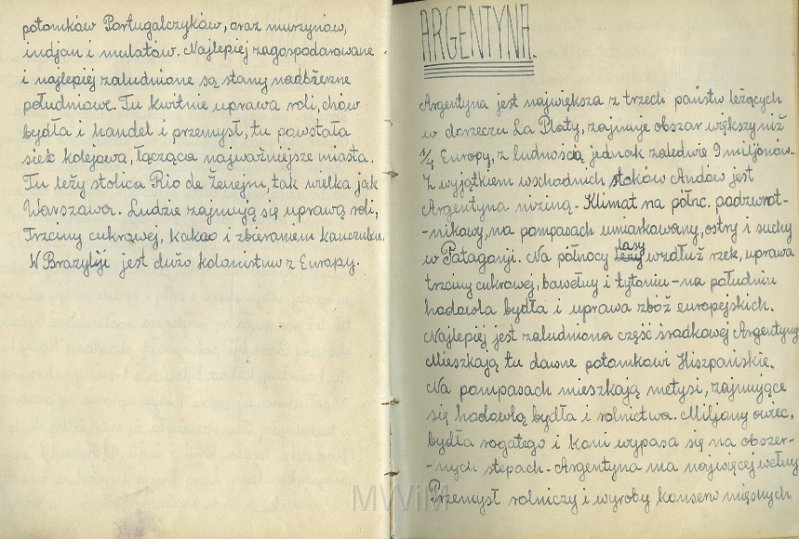 potomków Portugalczyków, oraz murzynów,
indjan i mulatów. Najlepiej zagospodarowane
i najlepiej zaludnione są stany nadbżeżne
południowe. Tu kwitnie uprawa roli, chów
bydła i handel i przemysł, tu powstała
sieć kolejowa, łącząca najważniejsze miasta.
Tu leży stolica Rio de Żenejru, tak wielka jak
Warszawa. Ludzie zajmują się uprawą roli,
Trzciny cukrowej, kakao i zbieraniem kauczuku.
W Brazyliji jest dużo kolonistuw z Europy.
ARGENTYNA.
Argentyna jest największa z trzech państw leżących
w dorzeczu La Platy, zajmuje obszar większy niż
1/4 Europy, z ludnością jednak zaledwie 9 miljonów.
Z wyjątkiem wschodnich stoków Andów jest
Argentyna niziną. Klimat na półnc. podzwrot-
-nikowy, na pompasach umiarkowany, ostry i suchy
w Patagonji. Na północy lasy wzdłuż rzek, uprawa
trzciny cukrowej, bawełny i tytoniu - na południu
hodowla bydła i uprawa zbóż europejskich.
Najlepiej jest zaludniona część środkowej Argentyny
Mieszkają tu dawne potomkowi Hiszpańskie.
Na pompasach mieszkają metysi, zajmujące
się hodowlą bydła i rolnictwa. Miljony owiec,
bydła rogatego i koni wypasa się na obszer-
-nych stepach. Argentyna ma najwięcej wełny
Przemysł rolniczy i wyroby konserw mięsnych
MWiM